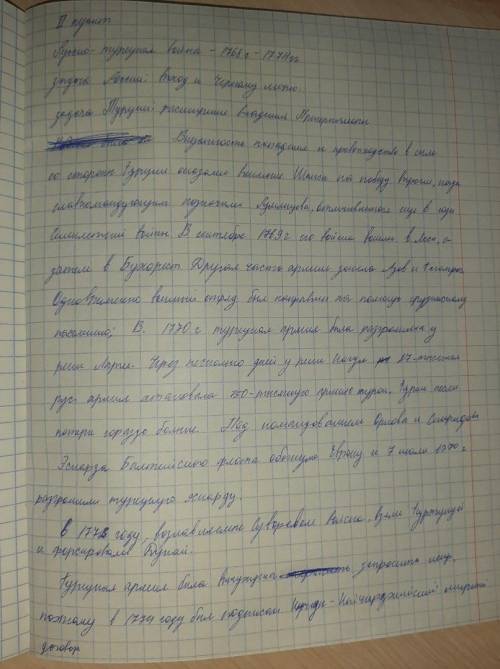 II пункт
Русско-турецкая война - 1768 г - 1774 гг.
задача России: выход к Черному морю.
задача Турции: расширение владения Причерноморья
Внезапность нападения и превосходство в силе
со стороны Турции оказали влияние. Шансы на победу выросли, когда
главнокомандующим назначили Румянцева, отличившегося ещё в годы
Семилетней Войны. В сентябре 1769 г его войска вошли в Яссы, а
затем в Бухарест. Другая часть армии заняла Азов и Таганрог
Одновременно военный отряд был направлен на помощь грузинскому
населению; В 1770 г турецкая армия была разгромлена у
реки Ларги. Через несколько дней у реки Кагул 27-тысячная
рус. армия атаковала 150-тысячную армию турок. Турки несли
потери гораздо больше. Под командованием Орлова и Спиридова
Эскадра Балтийского флота обогнула Европу и 7 июля 1770 г
разгромили турецкую эскадру.
В 1773 году, возглавляемые Суворовым войска взяли Туртукай
и форсировали Дунай.
Турецкая армия была вынуждена запросить мир,
поэтому в 1774 году был подписан Кючук-Кайнарджийский мирный
договор